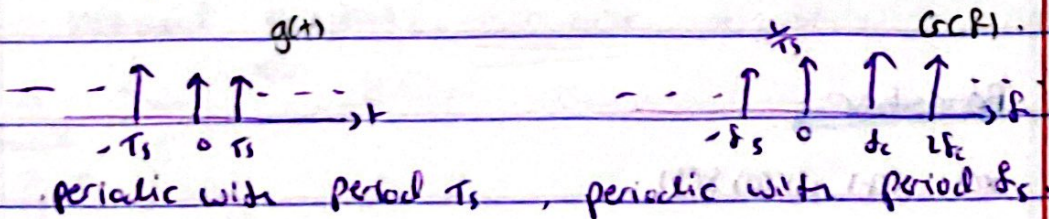 g(t) 1/Ts G(f).
-Ts 0 Ts t -fs 0 fc 2fc f
periodic with period Ts, periodic with period fs